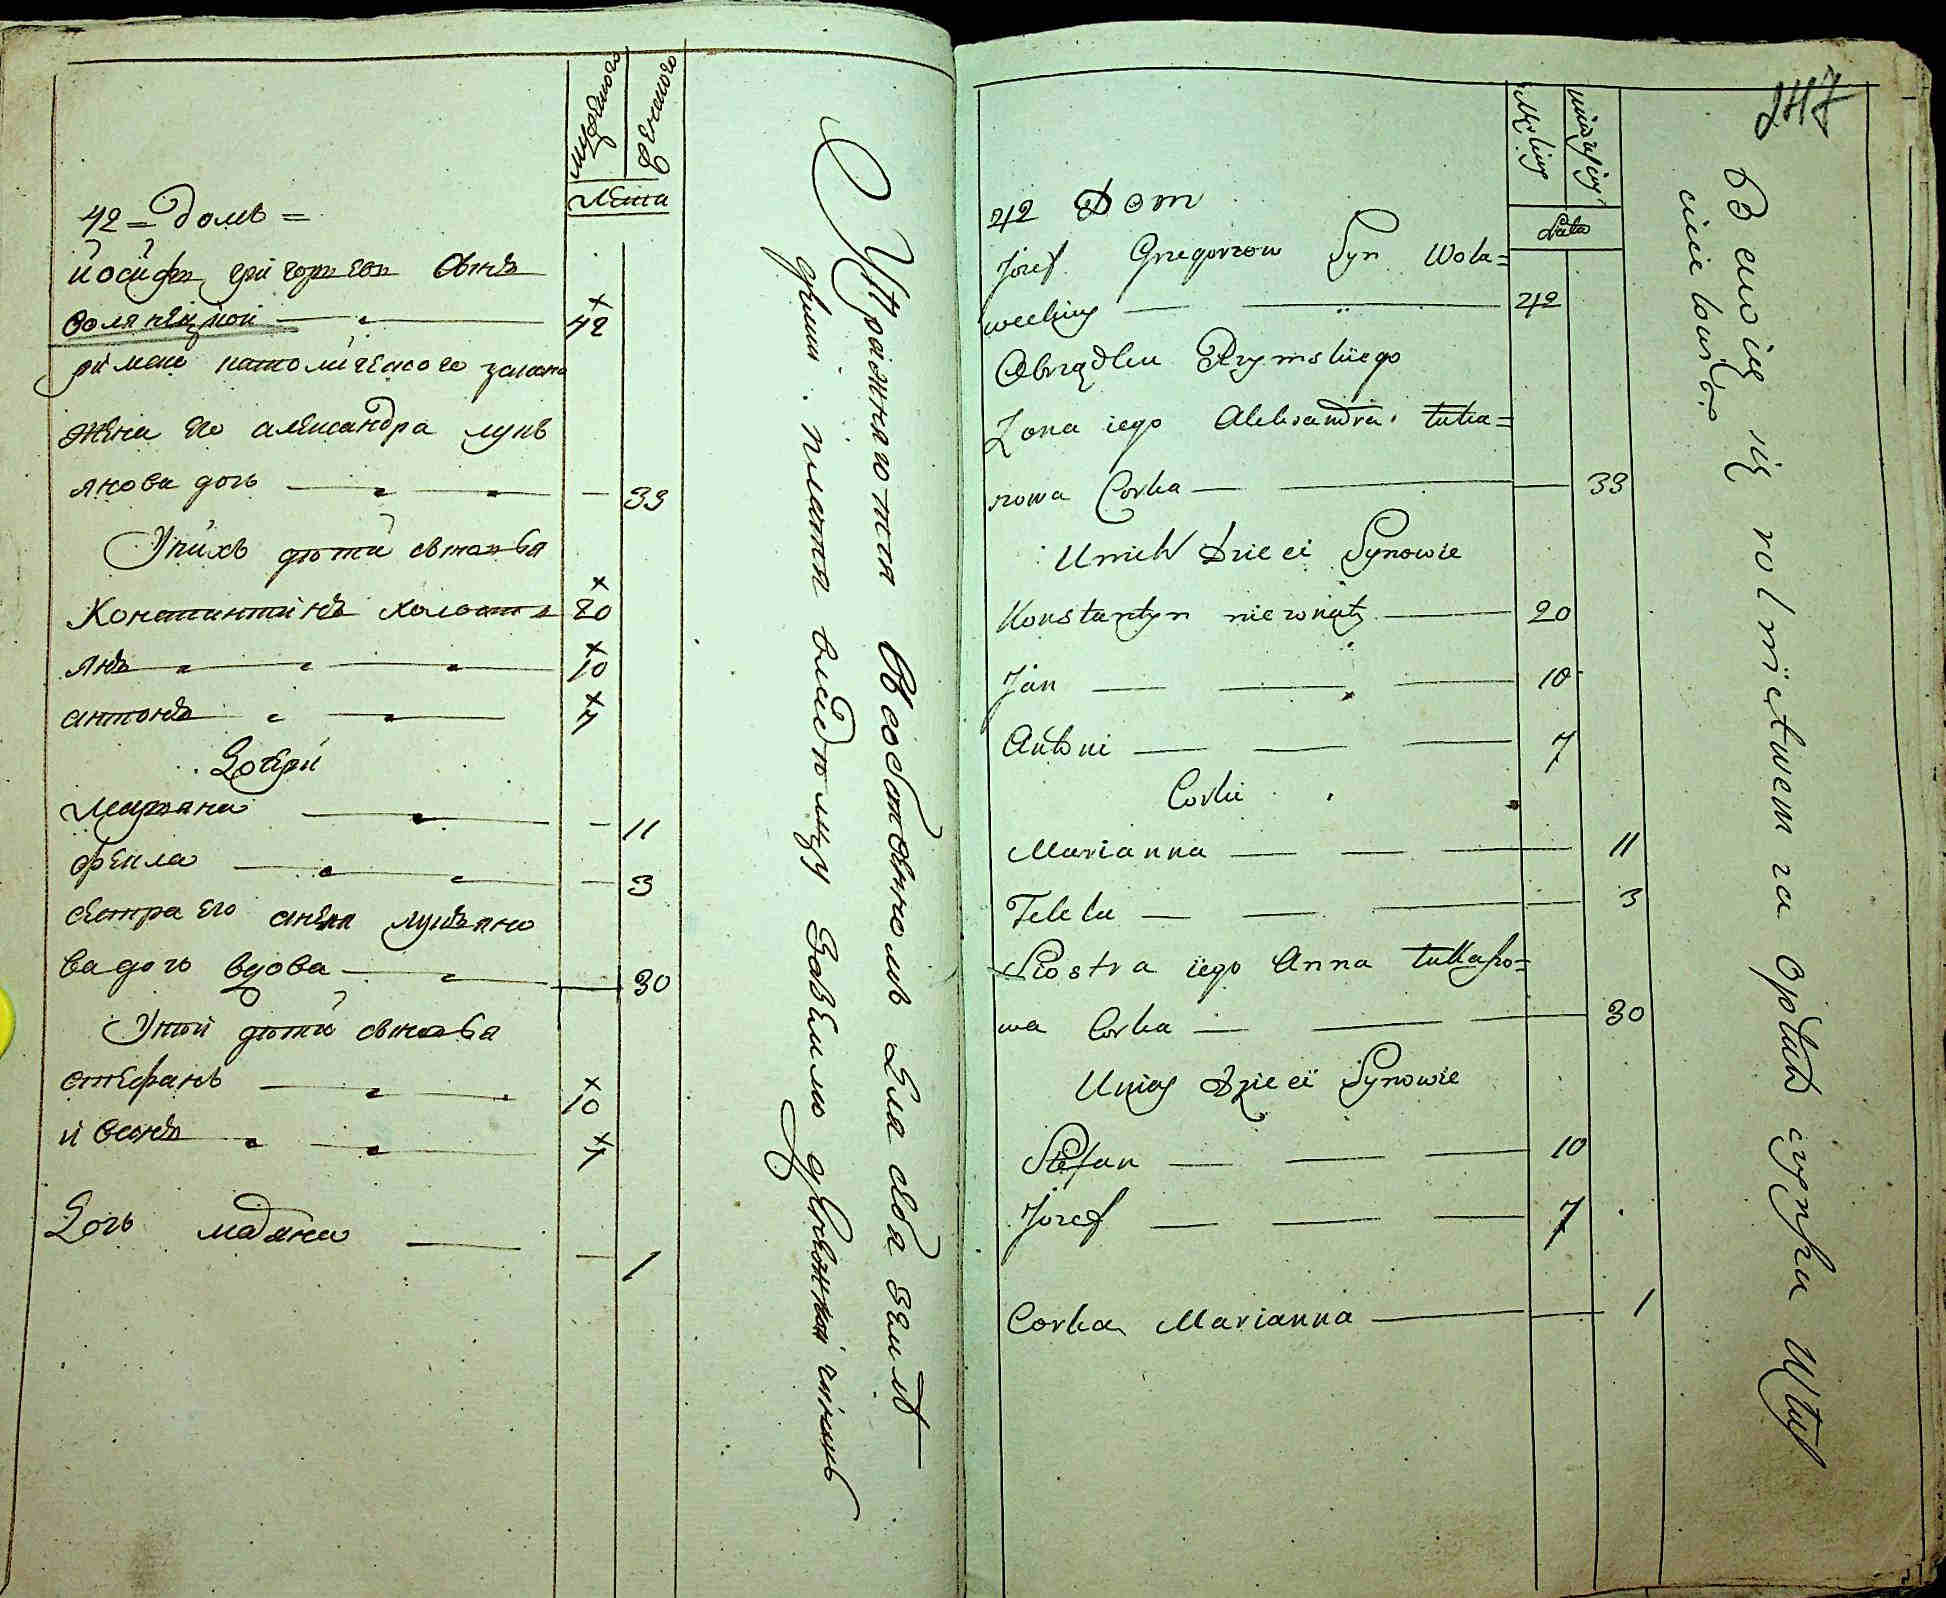 мужеского
женского
Лета
42 = домъ =
йосифъ григорьевъ сынъ
волянецкой 42
римско католическаго закона
жена его александра лукь
янова дочь 33
У нихъ дети сыновья
Константинъ холостъ 20
янъ 10
антонъ 7
Дочери
Марьяна 11
фекла 3
сестра его анна лукьяно
ва дочь вдова 30
У ней дети сыновья
стефанъ 10
и осипъ 7
Дочь марьяна 1
Упражняются въ собственномъ
земле
платя
247
męskiey
Lata
42 Dom
Jozef Gregorzow Syn Wola=
weckiey 42
Obrządku Rzymskiego
Zona iego Aleksandra Łuka=
nowa Corka 33
U nich Dzieci Synowie
Konstantyn nie zonaty 20
Jan 10
Antoni 7
Corki
Marianna 11
Tekla 3
Siostra iego Anna Łukano=
wa Corka 30
U niey Dzieci Synowie
Stefan 10
Jozef 7
Corka Marianna 1
Bawią się rolnictwem za opłatą czynszu